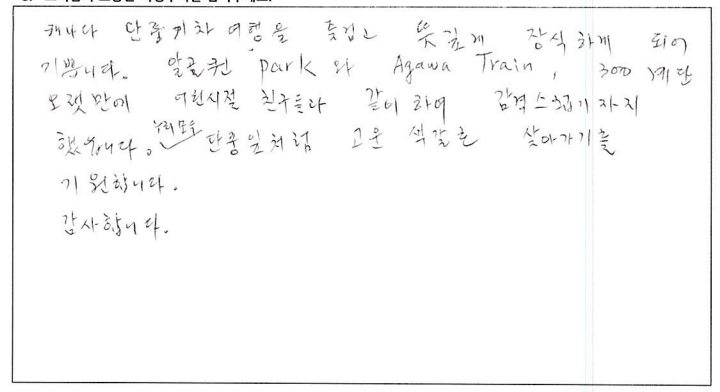 캐나다 단풍기차 여행을 즐겁고 뜻깊게 장식하게 되어
기쁩니다. 알골퀸 park 와 Agawa Train, 300 계단
오랫만에 어린시절 친구들과 같이 하여 감격스럽기까지
했읍니다. 우리모두 단풍잎처럼 고운 색갈로 살아가기를
기원합니다.
감사합니다.